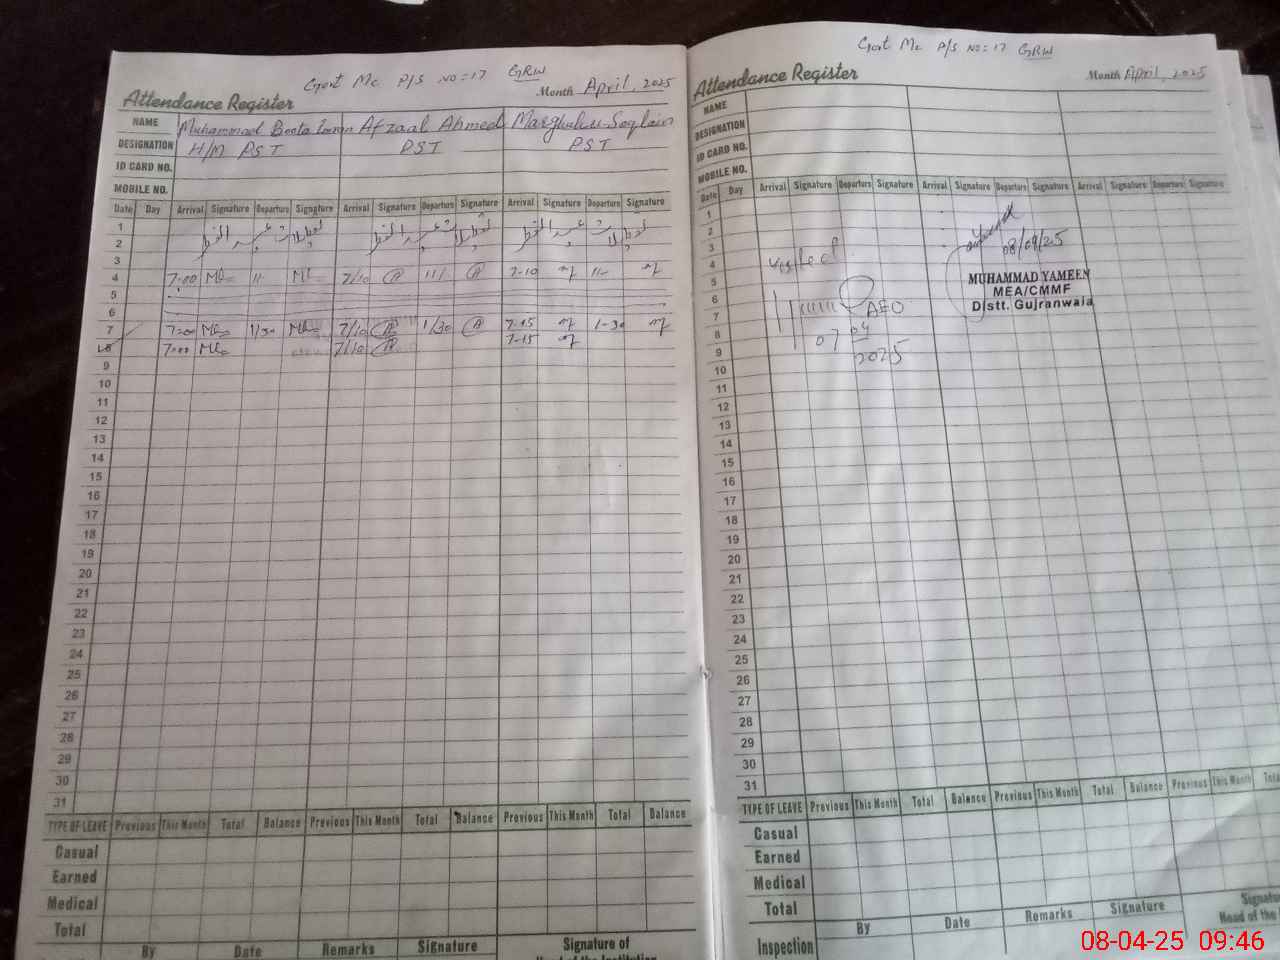 Govt Mc P/S NO=17 GRW
Attendance Register
Month April, 2025
NAME Muhammad Boota Afzaal Ahmed
DESIGNATION H/M PST PST PST
ID CARD NO.
MOBILE NO.
Date Day Arrival Signature Departure Signature Arrival Signature Departure Signature Arrival Signature Departure Signature
1 تعطیلات عید الفطر تعطیلات عید الفطر تعطیلات عید الفطر
2
3
4 7-00 11- 7/10 11/ 7-10 11-
5
6
7 7-00 1/30 7/10 1/30 7-15 1-30
8 7-00 7/10 7-15
9
10
11
12
13
14
15
16
17
18
19
20
21
22
23
24
25
26
27
28
29
30
31
TYPE OF LEAVE Previous This Month Total Balance Previous This Month Total Balance Previous This Month Total Balance
Casual
Earned
Medical
Total
By Date Remarks Signature Signature of
Head of the Institution
Govt Mc P/S NO=17 GRW
Attendance Register
Month April, 2025
NAME
DESIGNATION
ID CARD NO.
MOBILE NO.
Date Day Arrival Signature Departure Signature Arrival Signature Departure Signature Arrival Signature Departure Signature
1
2
3
4
5
6
7
8
9
10
11
12
13
14
15
16
17
18
19
20
21
22
23
24
25
26
27
28
29
30
31
visited
AEO
07 04
2025
08/04/25
MUHAMMAD YAMEEN
MEA/CMMF
Distt. Gujranwala
TYPE OF LEAVE Previous This Month Total Balance Previous This Month Total Balance Previous This Month Total
Casual
Earned
Medical
Total
By Date Remarks Signature
Head of the
Inspection
08-04-25 09:46